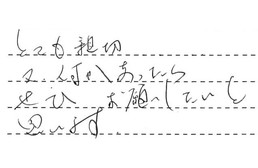 とても親切
又、何かあったら
ぜひ お願いしたいと
思います。